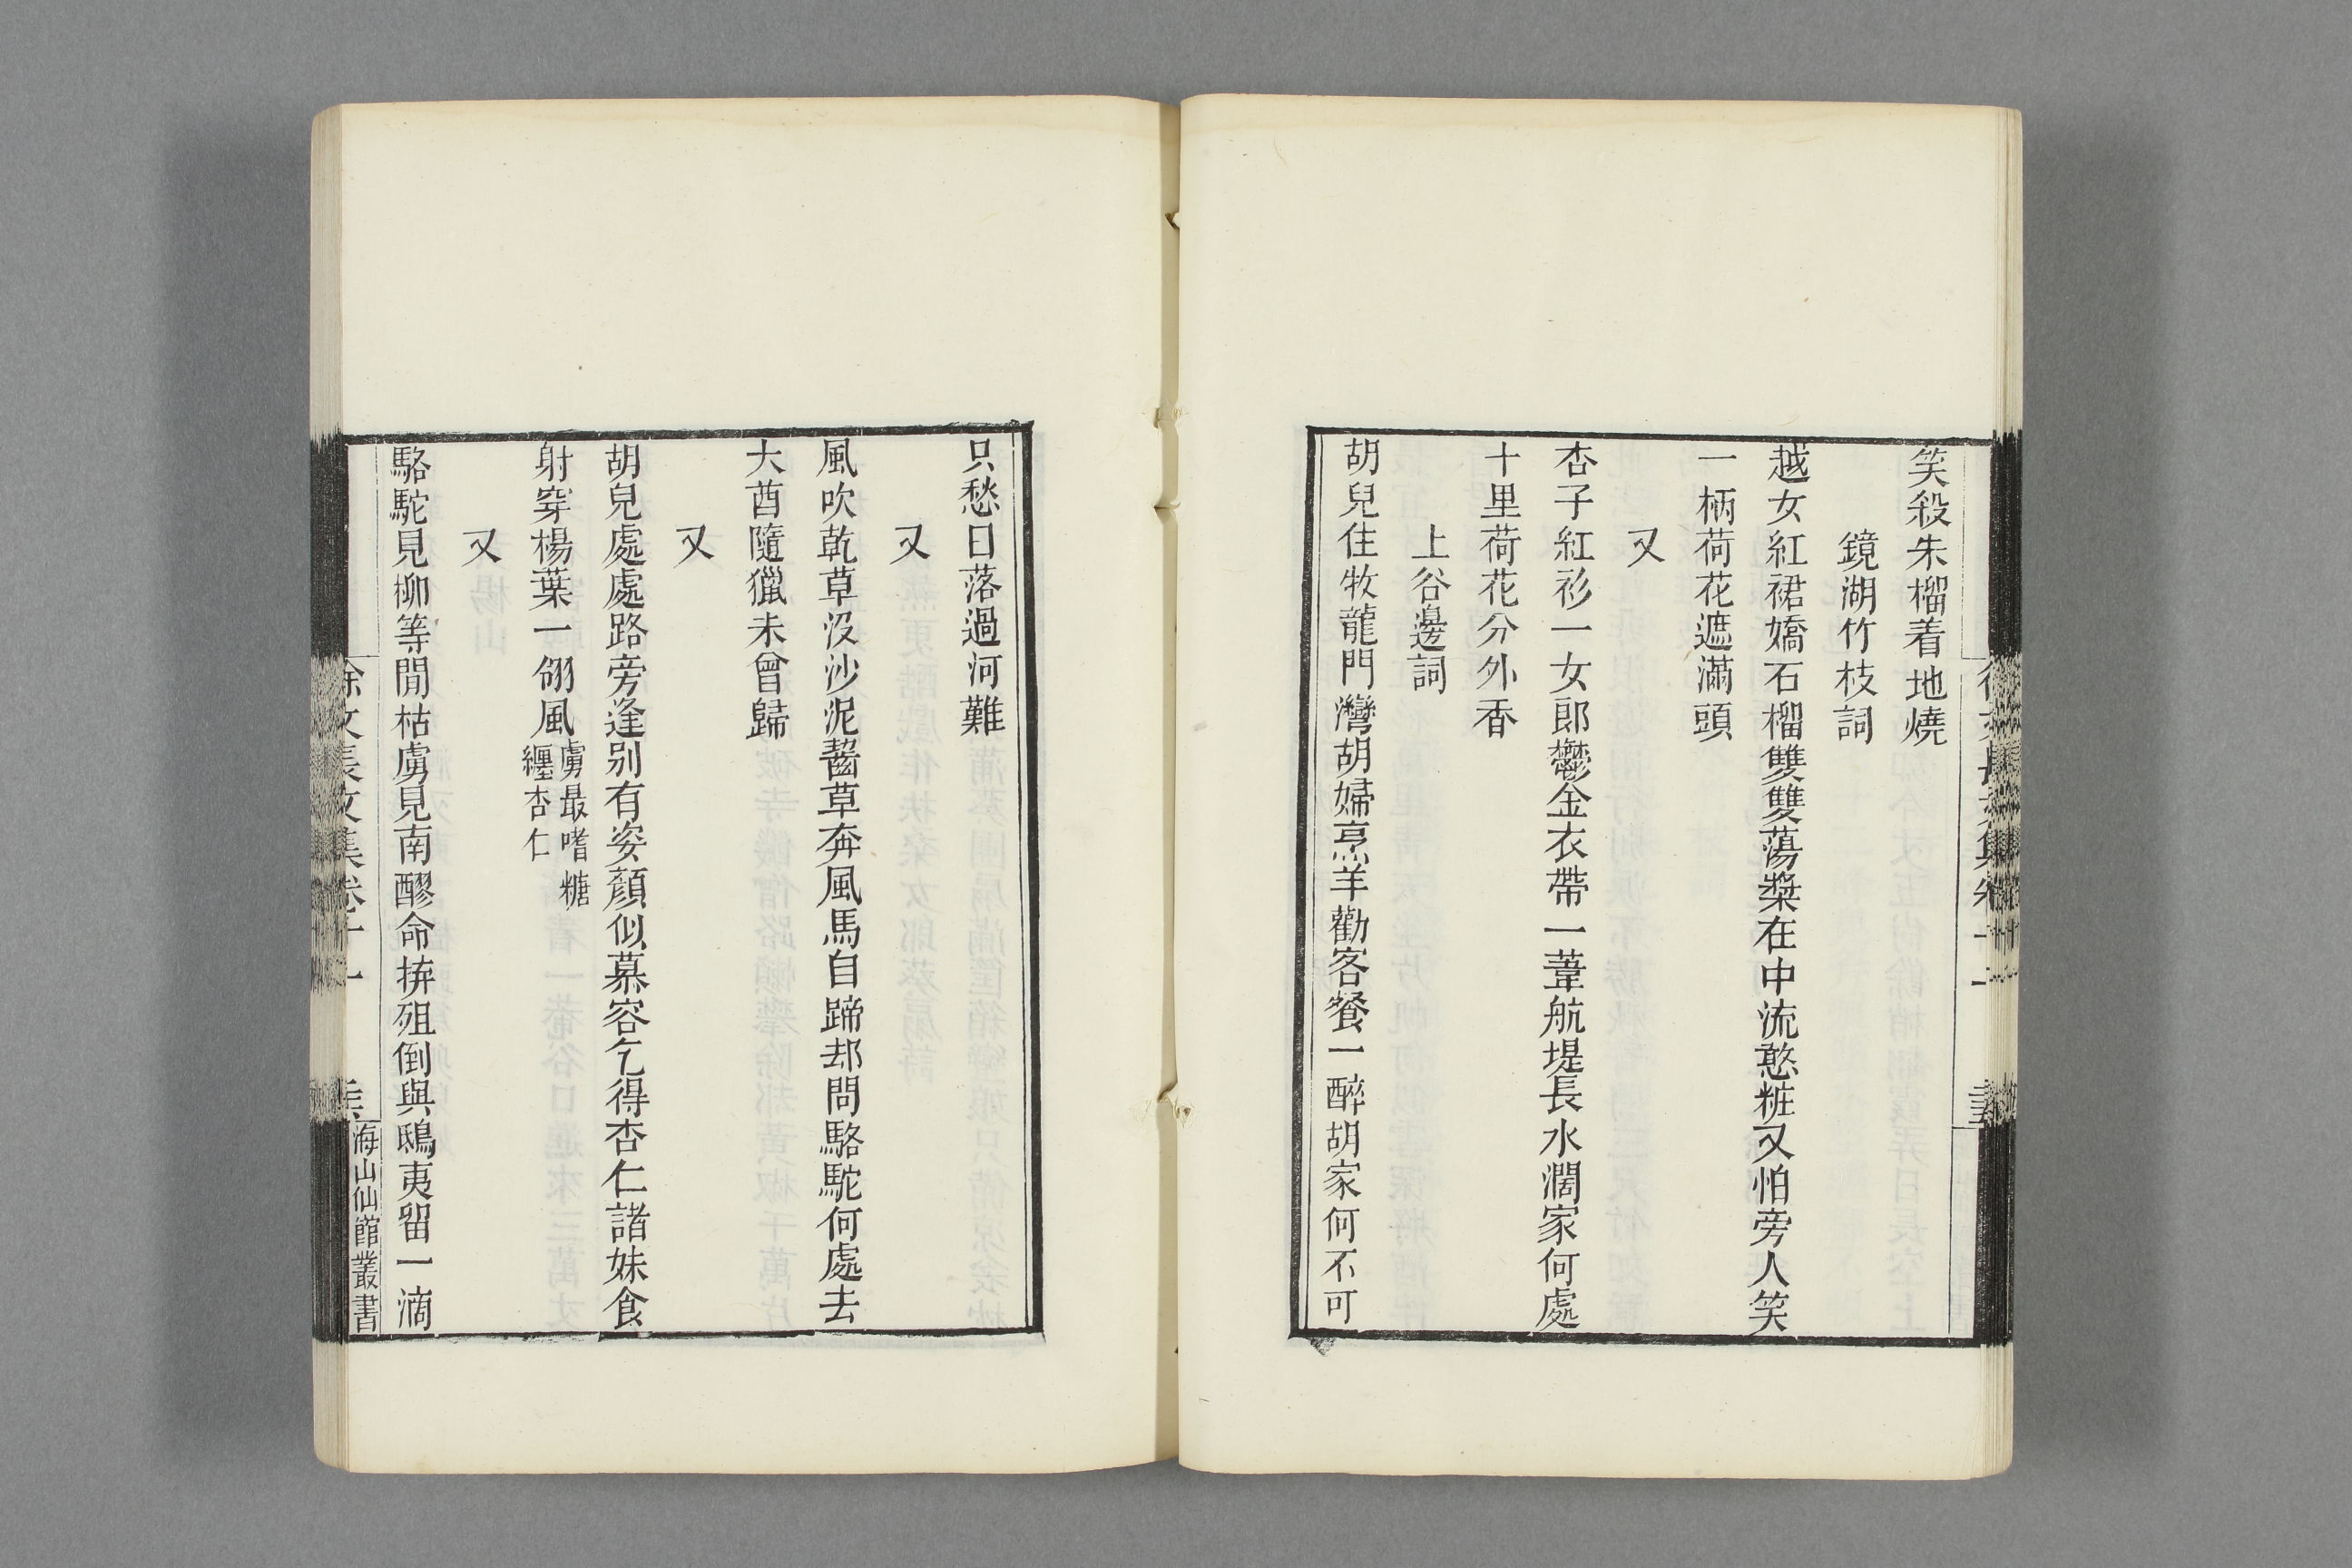 笑殺朱榴着地燒
鏡湖竹枝詞
越女紅裙嬌石榴雙雙蕩槳在中流憨粧又怕旁人笑
一柄荷花遮滿頭
又
杏子紅衫一女郎鬱金衣帶一葦航堤長水濶家何處
十里荷花分外香
上谷邊詞
胡兒住牧龍門灣胡婦烹羊勸客餐一醉胡家何不可
只愁日落過河難
又
風吹乾草沒沙泥齧草奔風馬自蹄却問駱駝何處去
大酋隨獵未曾歸
又
胡兒處處路旁逢别有姿顏似慕容乞得杏仁諸妹食
射穿楊葉一翎風虜最嗜糖
纏杏仁
又
駱駝見柳等閒枯虜見南醪命拚殂倒與鴟夷留一滴
徐文長文集卷十一
海山仙館叢書